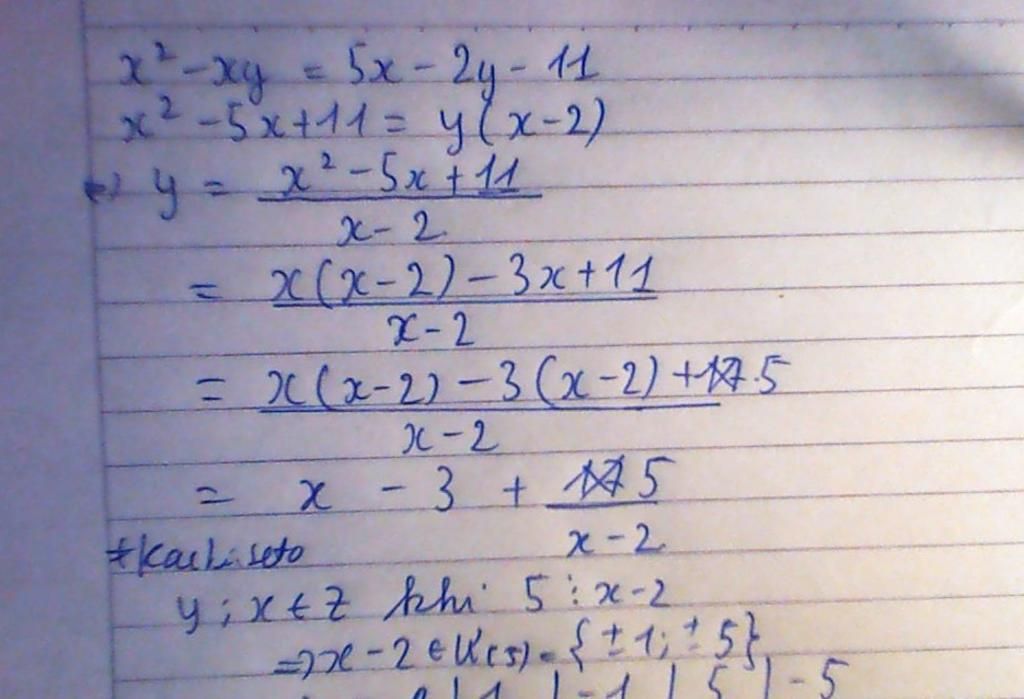 x² - xy = 5x - 2y - 11
x² - 5x + 11 = y(x-2)
=> y = x² - 5x + 11
x - 2
= x(x-2) - 3x + 11
x - 2
= x(x-2) - 3(x-2) + 5
x - 2
= x - 3 + 5
x - 2
y ; x ∈ Z khi 5 ⋮ x-2
=> x - 2 ∈ Ư(5) = {±1; ±5}
1 | -1 | 5 | -5